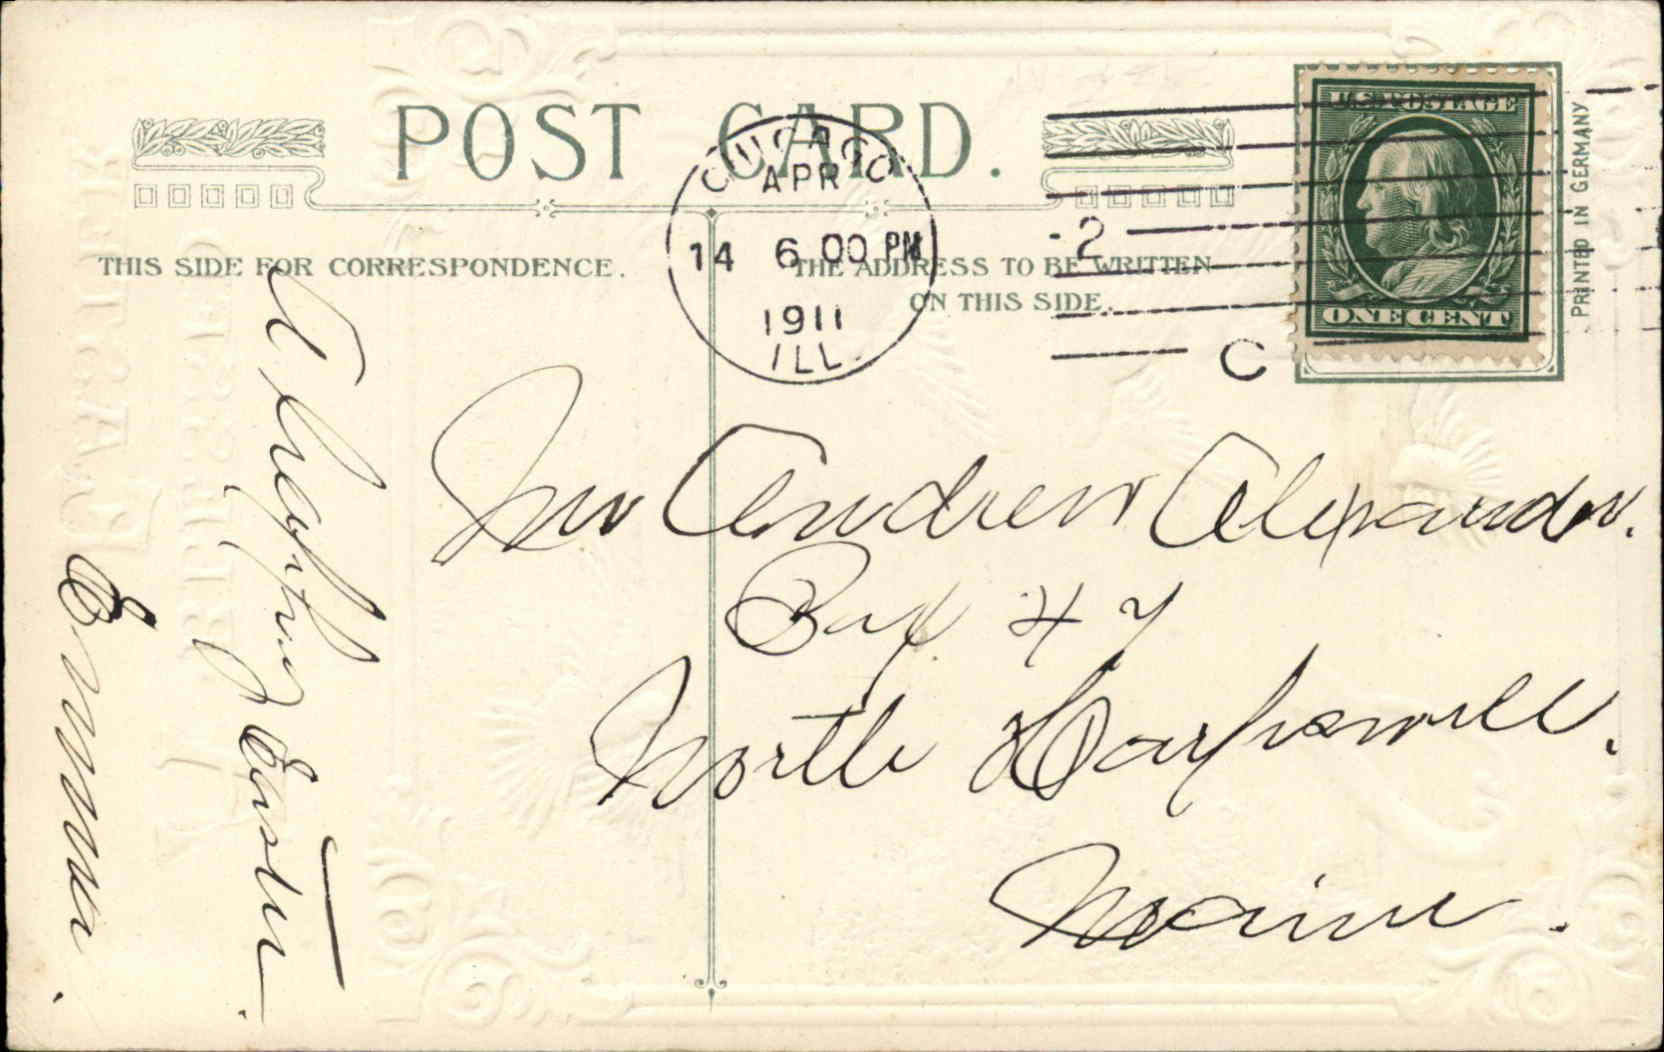 POST CARD.
THIS SIDE FOR CORRESPONDENCE.
THE ADDRESS TO BE WRITTEN
ON THIS SIDE.
CHICAGO
APR
14 6 00 PM
1911
ILL.
2
C
U.S. POSTAGE
ONE CENT
PRINTED IN GERMANY
Mr Andrew Alexander.
Box 47
North Harpswell.
Maine.
A Happy Easter.
Emma.